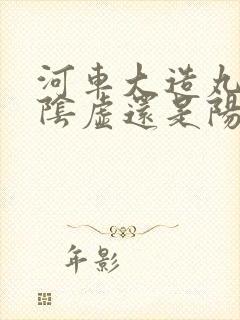 河車大造丸
陰虛還是陽
年影